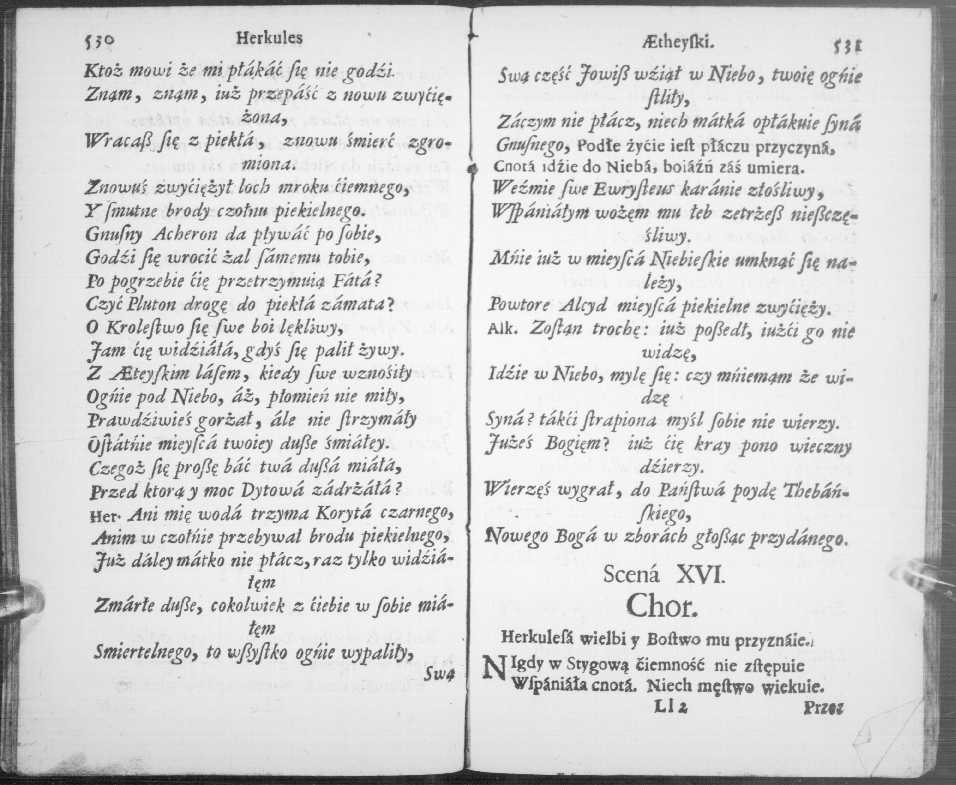 530 Herkules
Ktoż mowi że mi płákáć ſię nie godźi.
Znąm, znąm, iuż przepáść z nowu zwyćię-
żona,
Wracaß ſię z piekłá, znowu śmierć zgro-
miona.
Znowuś zwyćiężył loch mroku ćiemnego,
Y ſmutne brody czołnu piekielnego.
Gnuſny Acheron da pływáć po ſobie,
Godźi ſię wrocić żal ſámemu tobie,
Po pogrzebie ćię przetrzymuią Fátá?
Czyć Pluton drogę do piekłá zámata?
O Kroleſtwo ſię ſwe boi lękliwy,
Jam ćię widźiáłá, gdyś ſię palił żywy.
Z Æteyſkim láſem, kiedy ſwe wznośiły
Ogńie pod Niebo, áż, płomień nie miły,
Prawdźiwieś gorżał, ále nie ſtrzymáły
Oſtátńie mieyſcá twoiey duße śmiáłey.
Czegoż ſię proßę báć twá dußá miáłá,
Przed ktorą y moc Dytowá zádrżáłá?
Her. Ani mię wodá trzyma Korytá czarnego,
Anim w czołńie przebywał brodu piekielnego,
Już dáley mátko nie płácz, raz tylko widźiá-
łęm
Zmárłe duße, cokolwiek z ćiebie w ſobie miá-
łęm
Smiertelnego, to wßyſtko ogńie wypaliły,
Swą
Ætheyſki. 531
Swą część Jowiß wźiął w Niebo, twoię ogńie
ſtliły,
Záczym nie płácz, niech mátká opłákuie ſyná
Gnuſnego, Podłe żyćie ieſt płáczu przyczyną,
Cnotá idźie do Niebá, boiáźń záś umiera.
Weźmie ſwe Ewryſteus karánie złośliwy,
Wſpániáłym wożęm mu łeb zetrżeß nießczę-
śliwy.
Mńie iuż w mieyſcá Niebieſkie umknąć ſię na-
leży,
Powtore Alcyd mieyſcá piekielne zwyćięży.
Alk. Zoſtąn trochę: iuż poßedł, iużći go nie
widzę,
Idźie w Niebo, mylę ſię: czy mńiemąm że wi-
dzę
Syná? tákći ſtrapiona myśl ſobie nie wierzy.
Jużeś Bogięm? iuż ćię kray pono wieczny
dźierzy.
Wierzęś wygrał, do Páńſtwá poydę Thebáń-
ſkiego,
Nowego Bogá w zborách głoßąc przydánego.
Scená XVI.
Chor.
Herkuleſá wielbi y Boſtwo mu przyznáie.
NIgdy w Stygową ćiemność nie zſtępuie
Wſpániáła cnotá. Niech męſtwo wiekuie.
Ll 2 Przez